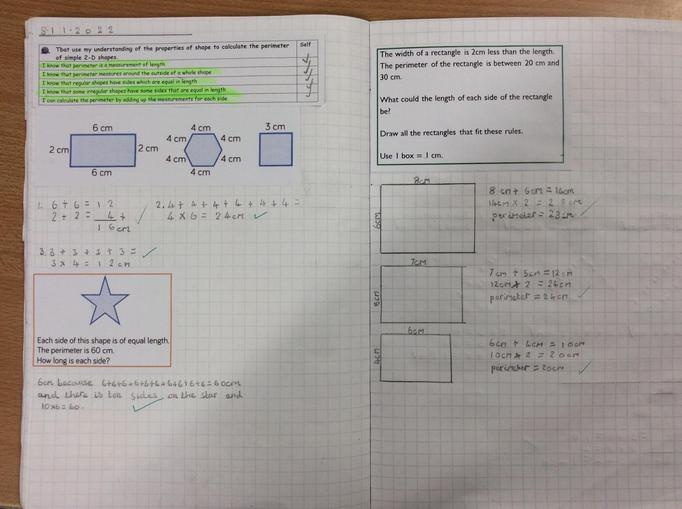 8.11.2022
That use my understanding of the properties of shape to calculate the perimeter of simple 2-D shapes.
Self
I know that perimeter is a measurement of length
I know that perimeter measures around the outside of a whole shape
I know that regular shapes have sides which are equal in length
I know that some irregular shapes have some sides that are equal in length
I can calculate the perimeter by adding up the measurements for each side
6 cm
2 cm
2 cm
6 cm
4 cm
4 cm
4 cm
4 cm
4 cm
4 cm
3 cm
1. 6 + 6 = 12
2 + 2 = 4 +
16cm
2. 4 + 4 + 4 + 4 + 4 + 4 =
4 x 6 = 24cm
3. 3 + 3 + 3 + 3 =
3 x 4 = 12cm
Each side of this shape is of equal length.
The perimeter is 60 cm.
How long is each side?
6cm because 6+6+6+6+6+6+6+6+6+6=60cm
and there is ten sides on the star and
10x6=60.
The width of a rectangle is 2cm less than the length.
The perimeter of the rectangle is between 20 cm and
30 cm.
What could the length of each side of the rectangle
be?
Draw all the rectangles that fit these rules.
Use 1 box = 1 cm.
8cm
6cm
8cm + 6cm = 14cm
14cm x 2 = 28cm
perimeter = 28cm
7cm
5cm
7cm + 5cm = 12cm
12cm x 2 = 24cm
perimeter = 24cm
6cm
4cm
6cm + 4cm = 10cm
10cm x 2 = 20cm
perimeter = 20cm